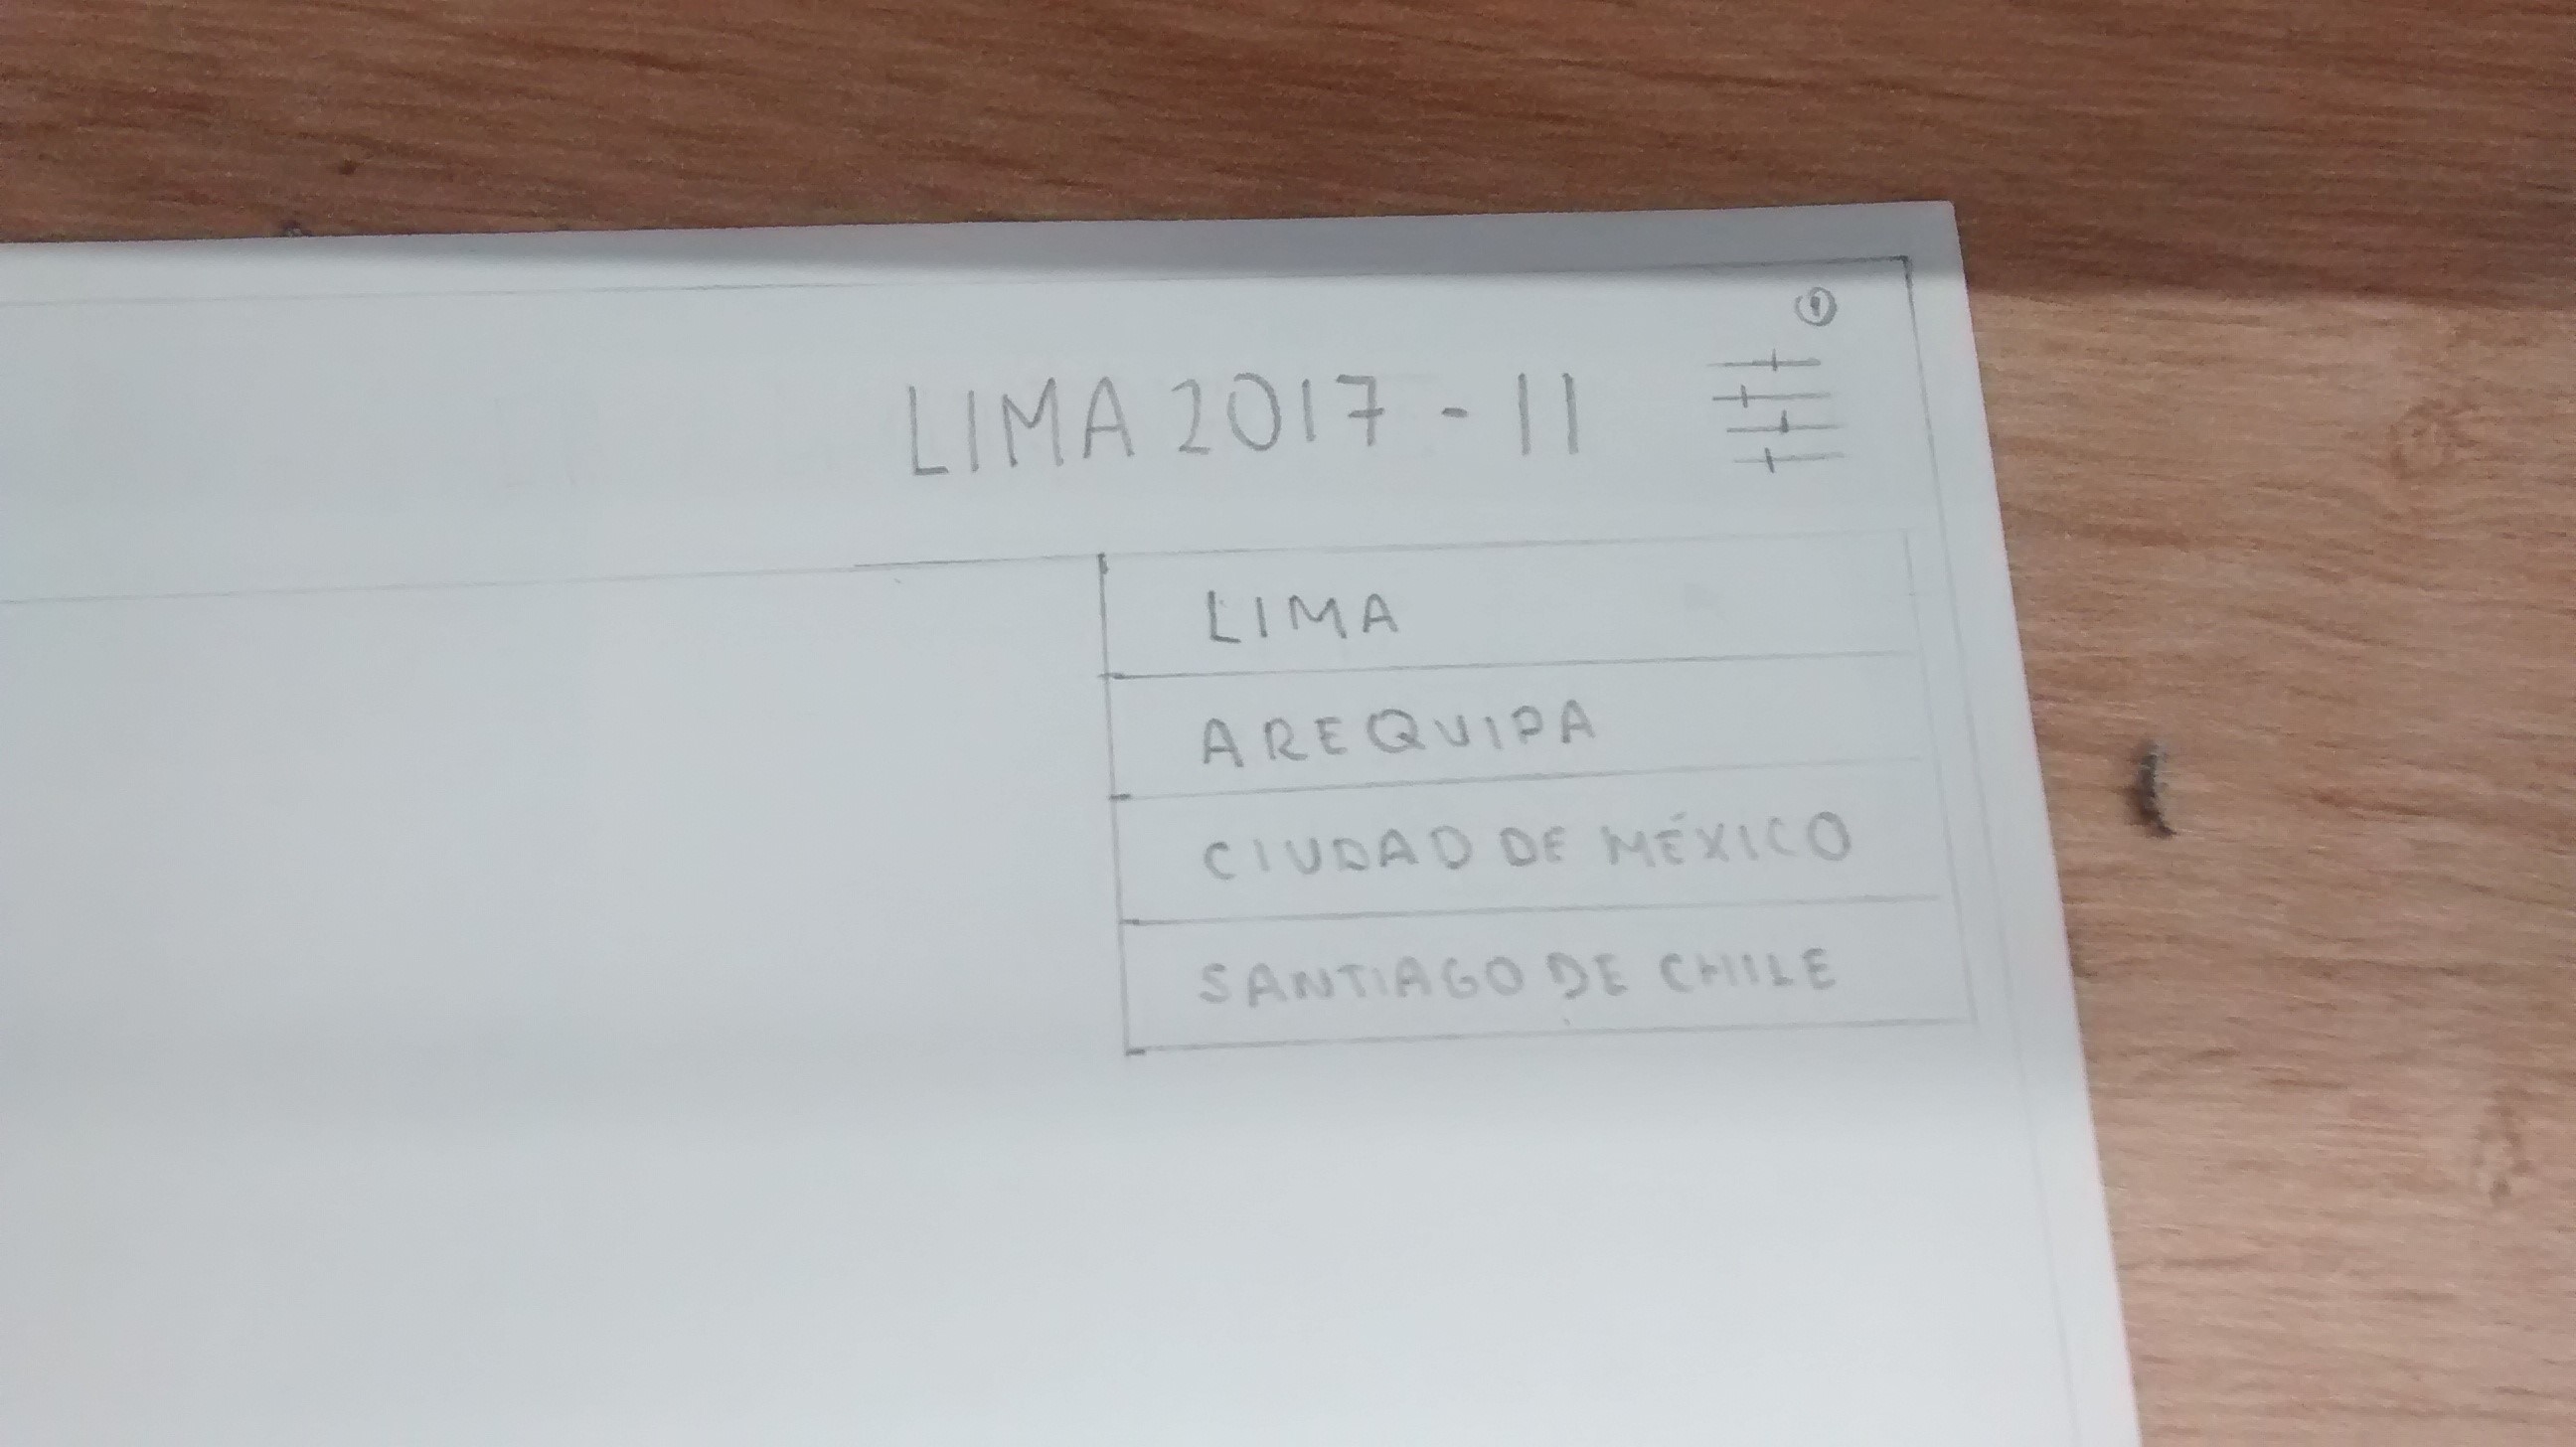 LIMA 2017 - II
LIMA
AREQUIPA
CIUDAD DE MÉXICO
SANTIAGO DE CHILE